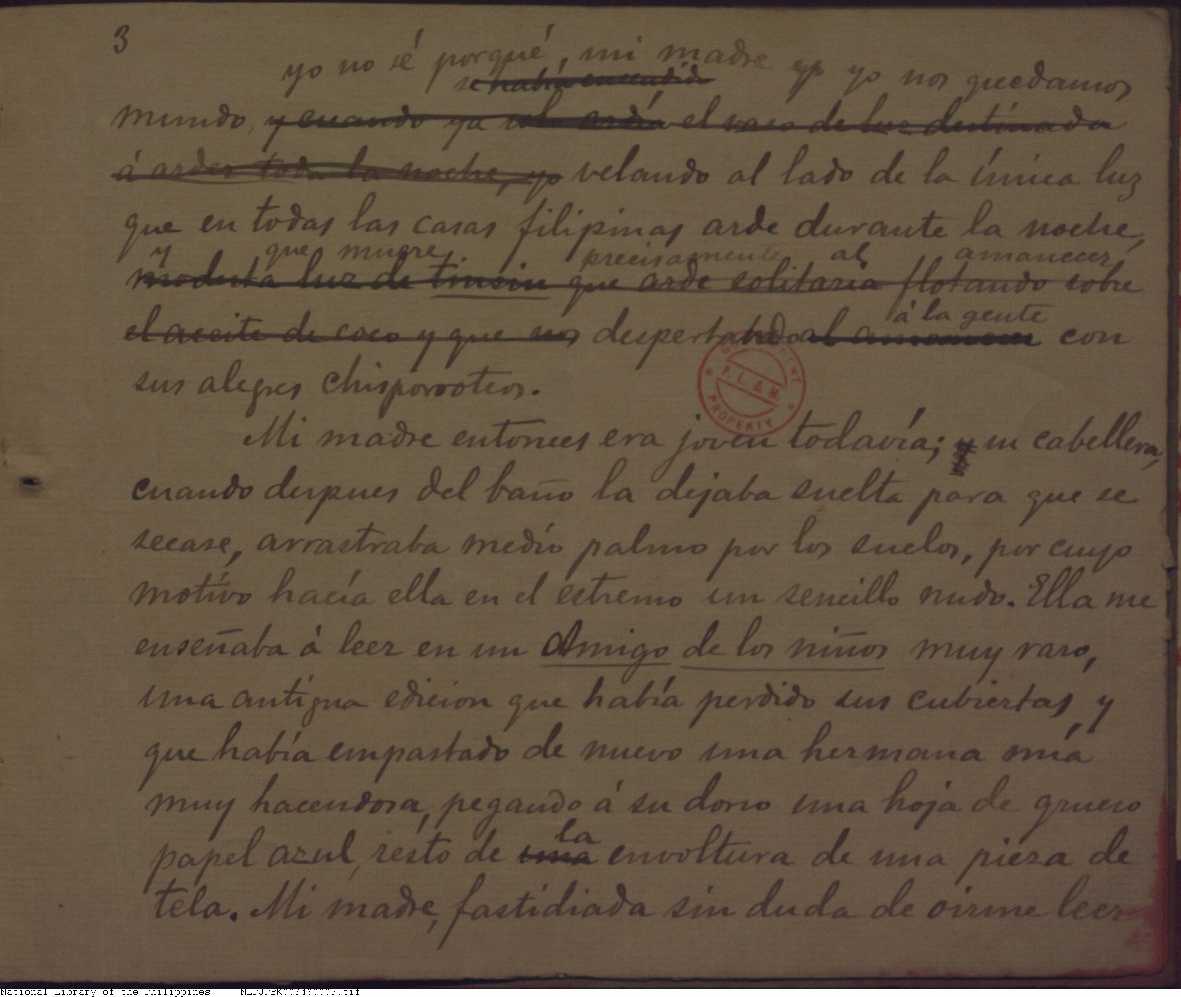 3
yo no sé porqué, mi madre y yo nos quedamos
se había encendido
mundo, y cuando ya solo ardía el vaso de luz destinada
á arder toda la noche, yo velando al lado de la única luz
que en todas las casas filipinas arde durante la noche,
y que muere precisamente al amanecer
modesta luz de tinsin que arde solitaria flotando sobre
el aceite de coco y que nos despertando al amanecer á la gente con
sus alegres chisporroteos.
Mi madre entonces era joven todavía; y su cabellera,
cuando despues del baño la dejaba suelta para que se
secase, arrastraba medio palmo por los suelos, por cuyo
motivo hacía ella en el estremo un sencillo nudo. Ella me
enseñaba á leer en un Amigo de los niños muy raro,
una antigua edicion que había perdido sus cubiertas, y
que había empastado de nuevo una hermana mía
muy hacendosa, pegando á su dorso una hoja de grueso
papel azul, resto de una la envoltura de una pieza de
tela. Mi madre, fastidiada sin duda de oirme leer
P.L.A.H.
PROPERTY
National Library of the Philippines